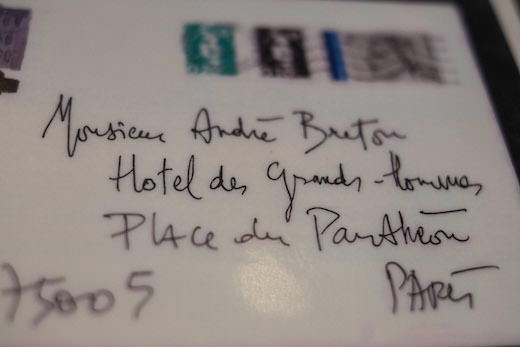 Monsieur André Breton
Hotel des Grands-Hommes
PLACE du Panthéon
75005 PARIS